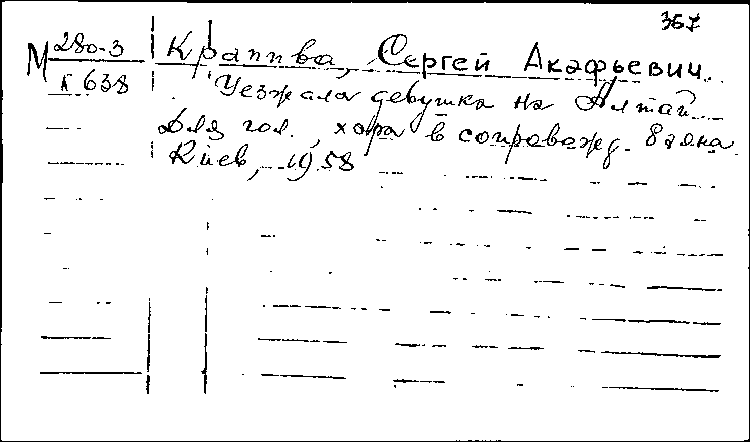 367
М 280-3
К 638
Крапива, Сергей Акафьевич.
Уезжала девушка на Алтай
Для гол., хора в сопровожд. баяна.
Киев, 1958